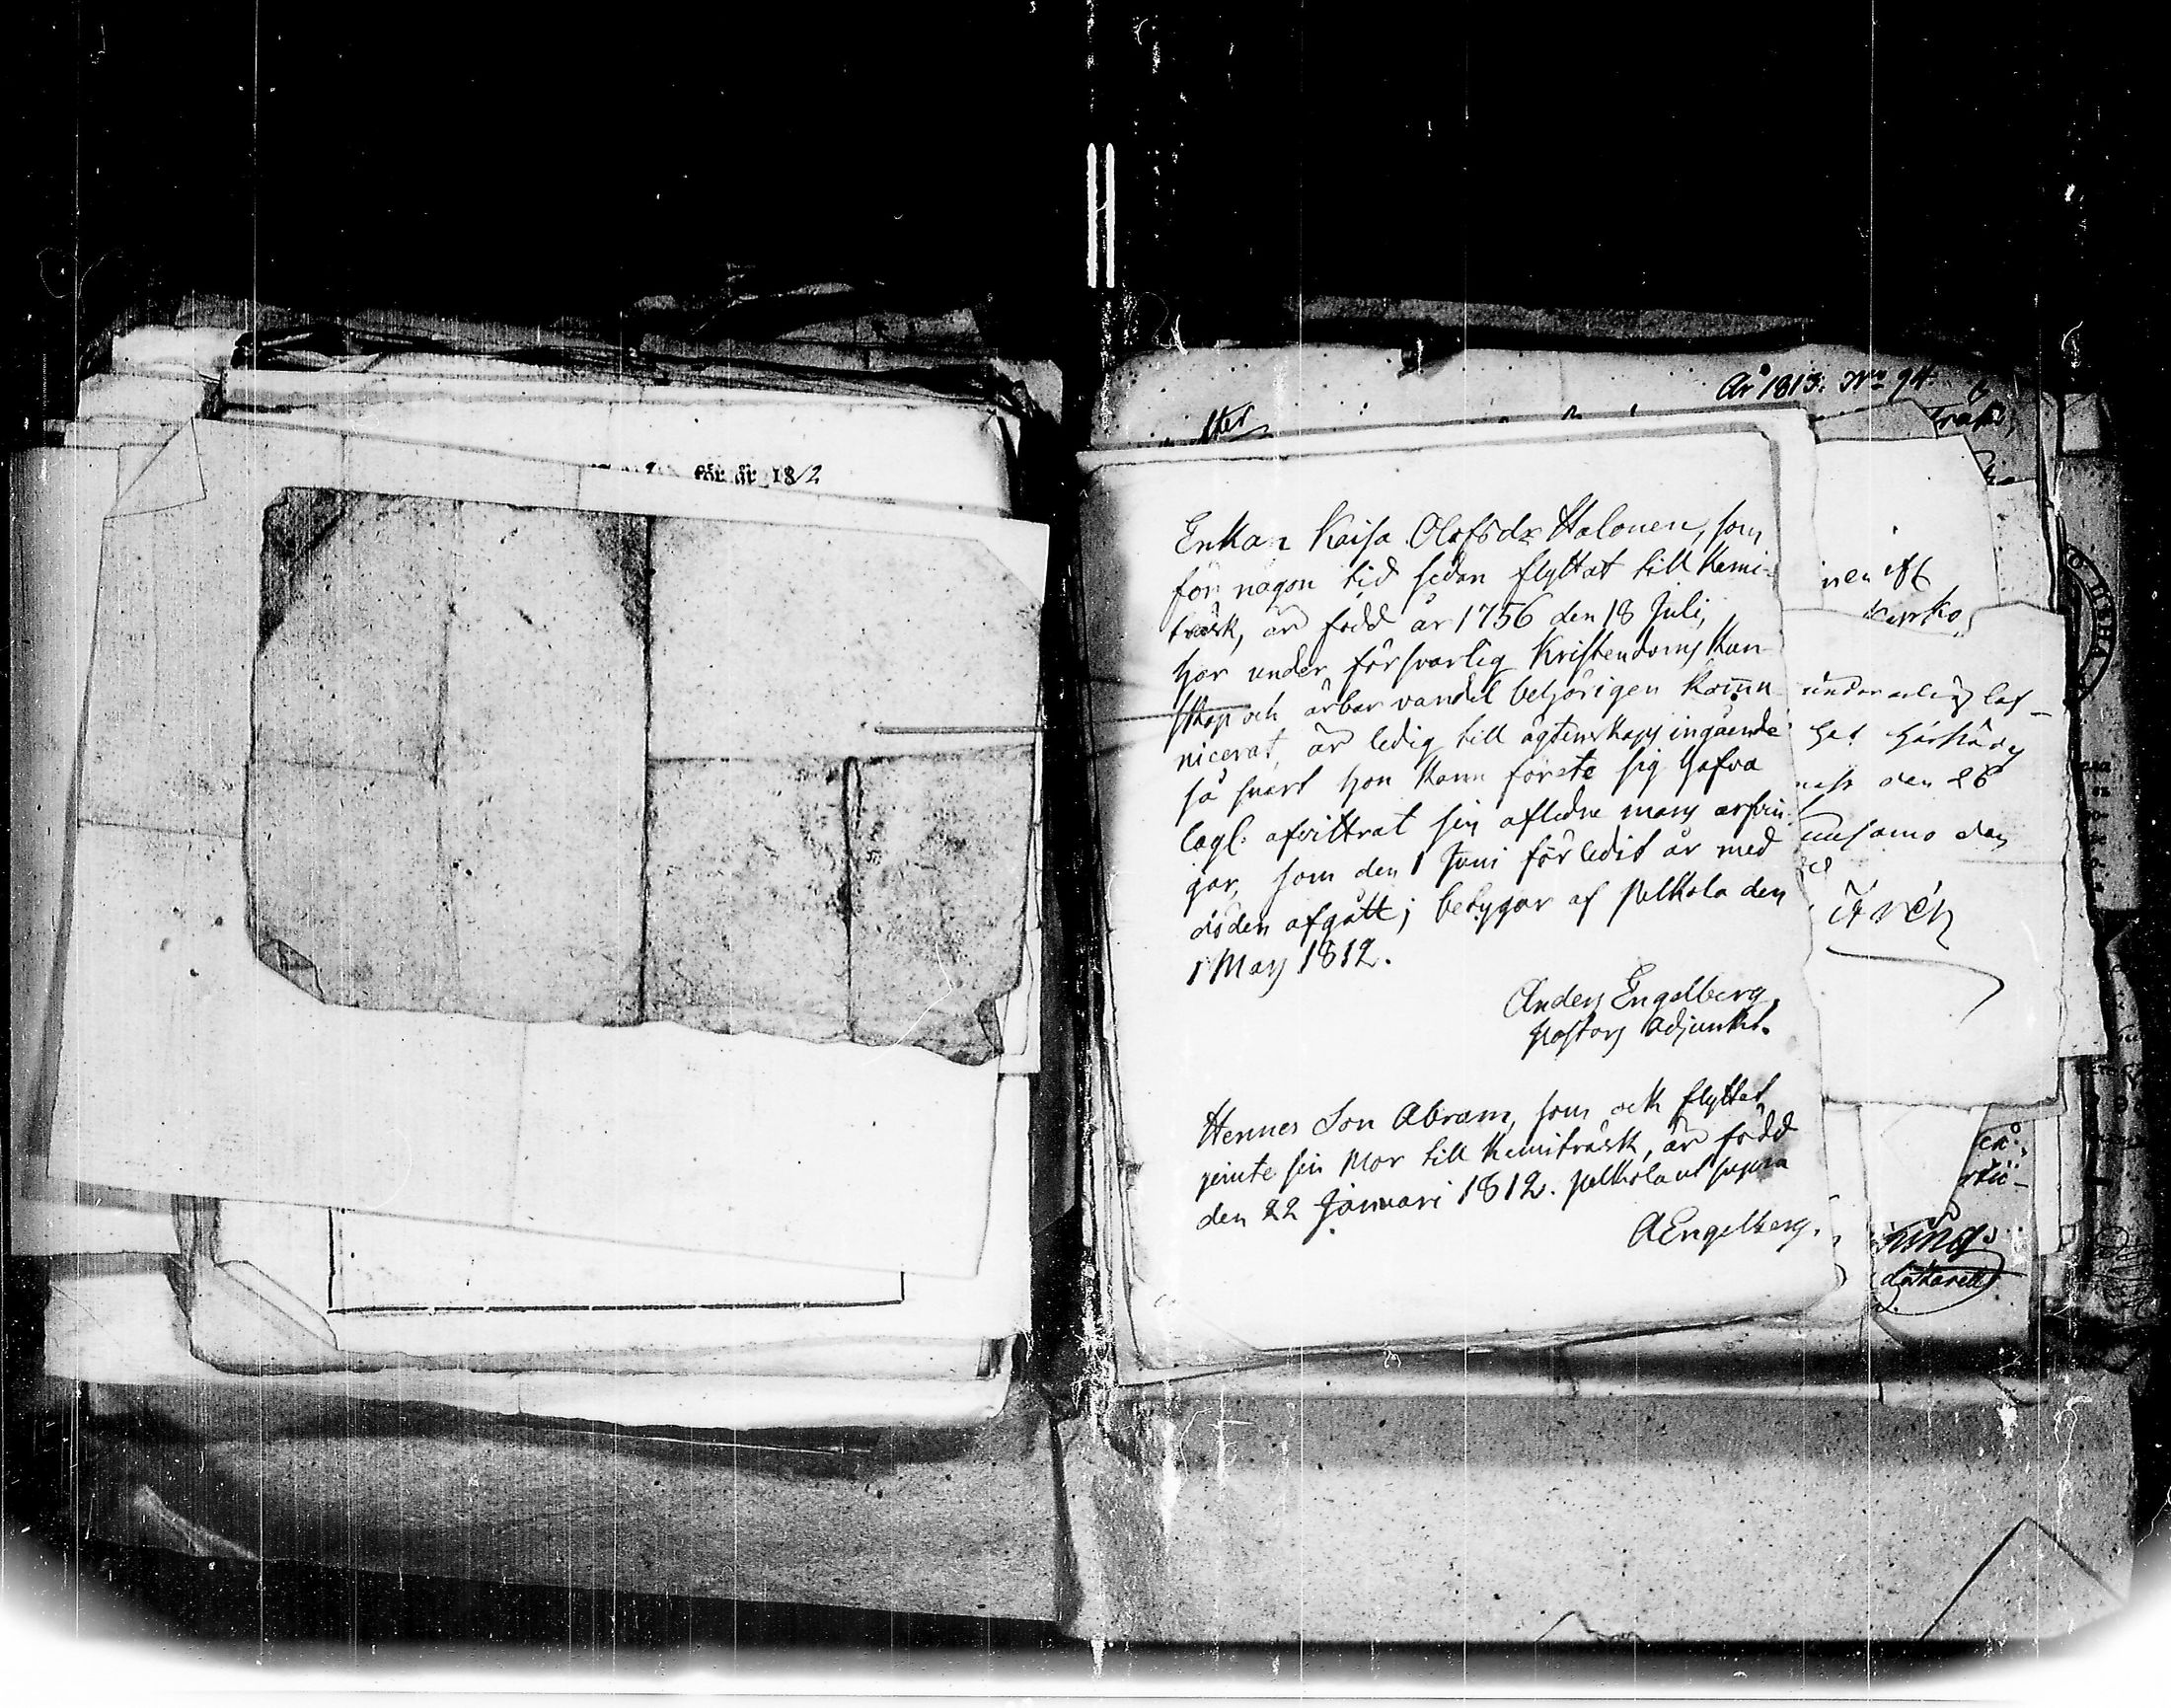 för år 1812
År 1813. No 94.
Enkan Kaisa Olofsdr Halonen, som
för någon tid sedan flyttat till Kemi-
träsk, är född år 1756 den 18 Juli,
har under försvarlig Kristendoms Kun-
skap och ärbar vandel behörigen kom̄u-
nicerat, är ledig till ägtenskaps ingående
så snart hon kann förete sig hafva
lagl. afvittrat sin aflidne mans arfvin-
gar, som den 1 Juni förledit år med
döden afgått; betygar af Pelkola den
1 Maij 1812.
Anders Engelberg,
Pastors Adjunkt.
Hennes Son Abram, som ock flyttat
jemte sin Mor till Kemiträsk, är född
den 22 Januari 1812. Pelkola ut supra
AEngelberg.
den 26
den